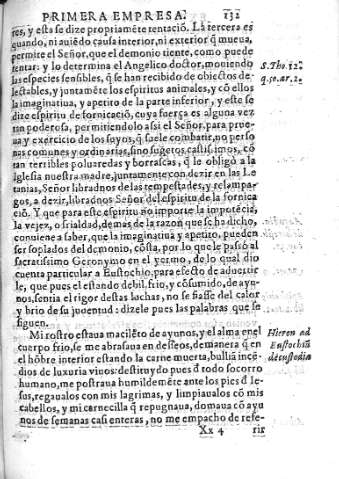 PRIMERA EMPRESA. 132
ros, y esta se dize propriamẽte tentaciõ. La tercera es
quando, ni auiẽdo causa interior, ni exterior q̃ mueua,
permite el Señor, que el demonio tiente, como puede
tentar: y lo determina el Angelico doctor, moniendo
las especies sensibles, q̃ se han recibido de obiectos de-
lectables, y juntamẽte los espiritos animales, y cõ ellos
la imaginatiua, y apetito de la parte inferior, y este se
dize espiritu de fornicaciõ, cuya fuerça es alguna vez
tan poderosa, permitiendolo assi el Señor, para prue-
ua y exercicio de los suyos, q̃ suele combatir, no perso
nas comunes y ordinarias, sino sugetos castissimos, cõ
tan terribles poluaredas y borrascas, q̃ le obligò a la
Iglesia nuestra madre, juntamente con dezir en las Le
tanias, Señor libradnos de las tempestades, y relampa-
gos, a dezir, libradnos Señor del espiritu de la fornica
ciõ. Y que para este espiritu no importe la impotẽcia,
la vejez, o frialdad, demas de la razon que se ha dicho,
conuiene a saber, que la imaginatiua y apetito, pueden
ser soplados del demonio, cõsta, por lo que le passó al
sacratissimo Geronymo en el yermo, de lo qual dio
cuenta particular a Eustochio, para efecto de aduertir
le, que pues el estando debil, frio, y cõsumido, de ayu-
nos, sentia el rigor destas luchas, no se fiasse del calor
y brio de su juventud: dizele pues las palabras que se
siguen.
Mi rostro estaua macilẽto de ayunos, y el alma en el
cuerpo frio, se me abrasaua en desseos, de manera q̃ en
el hõbre interior estando la carne muerta, bulliã incẽ-
dios de luxuria viuos: destituydo pues d̃ todo socorro
humano, me postraua humildemẽte ante los pies d̃ Ie-
sus, regaualos con mis lagrimas, y limpiaualos cõ mis
cabellos, y mi carnecilla q̃ repugnaua, domaua cõ ayu
nos de semanas casi enteras, no me empacho de refe-
Xx 4 rir
S. Tho. 12.
q. 80. ar. 2.
Hieron ad
Eustochiũ
de custodia